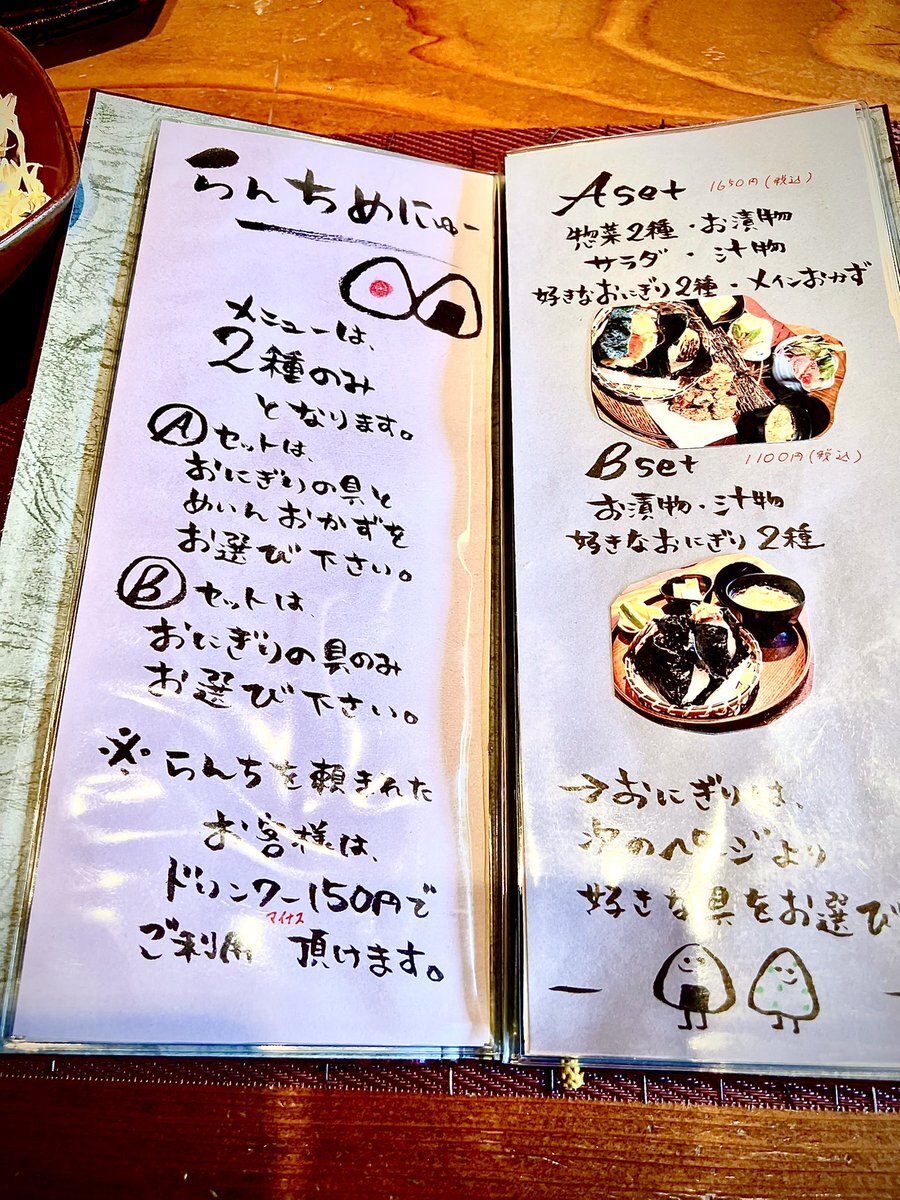 らんちめにゅー
メニューは、
2種のみ
となります。
Ⓐセットは、
おにぎりの具と
めいんおかずを
お選び下さい。
Ⓑセットは、
おにぎりの具のみ
お選び下さい。
※らんちを頼まれた
お客様は、
ドリンクー150円で
マイナス
ご利用 頂けます。
Aset 1650円(税込)
惣菜2種・お漬物
サラダ・汁物
好きなおにぎり2種・メインおかず
Bset 1100円(税込)
お漬物・汁物
好きなおにぎり2種
→おにぎりは、
次のページより
好きな具をお選び